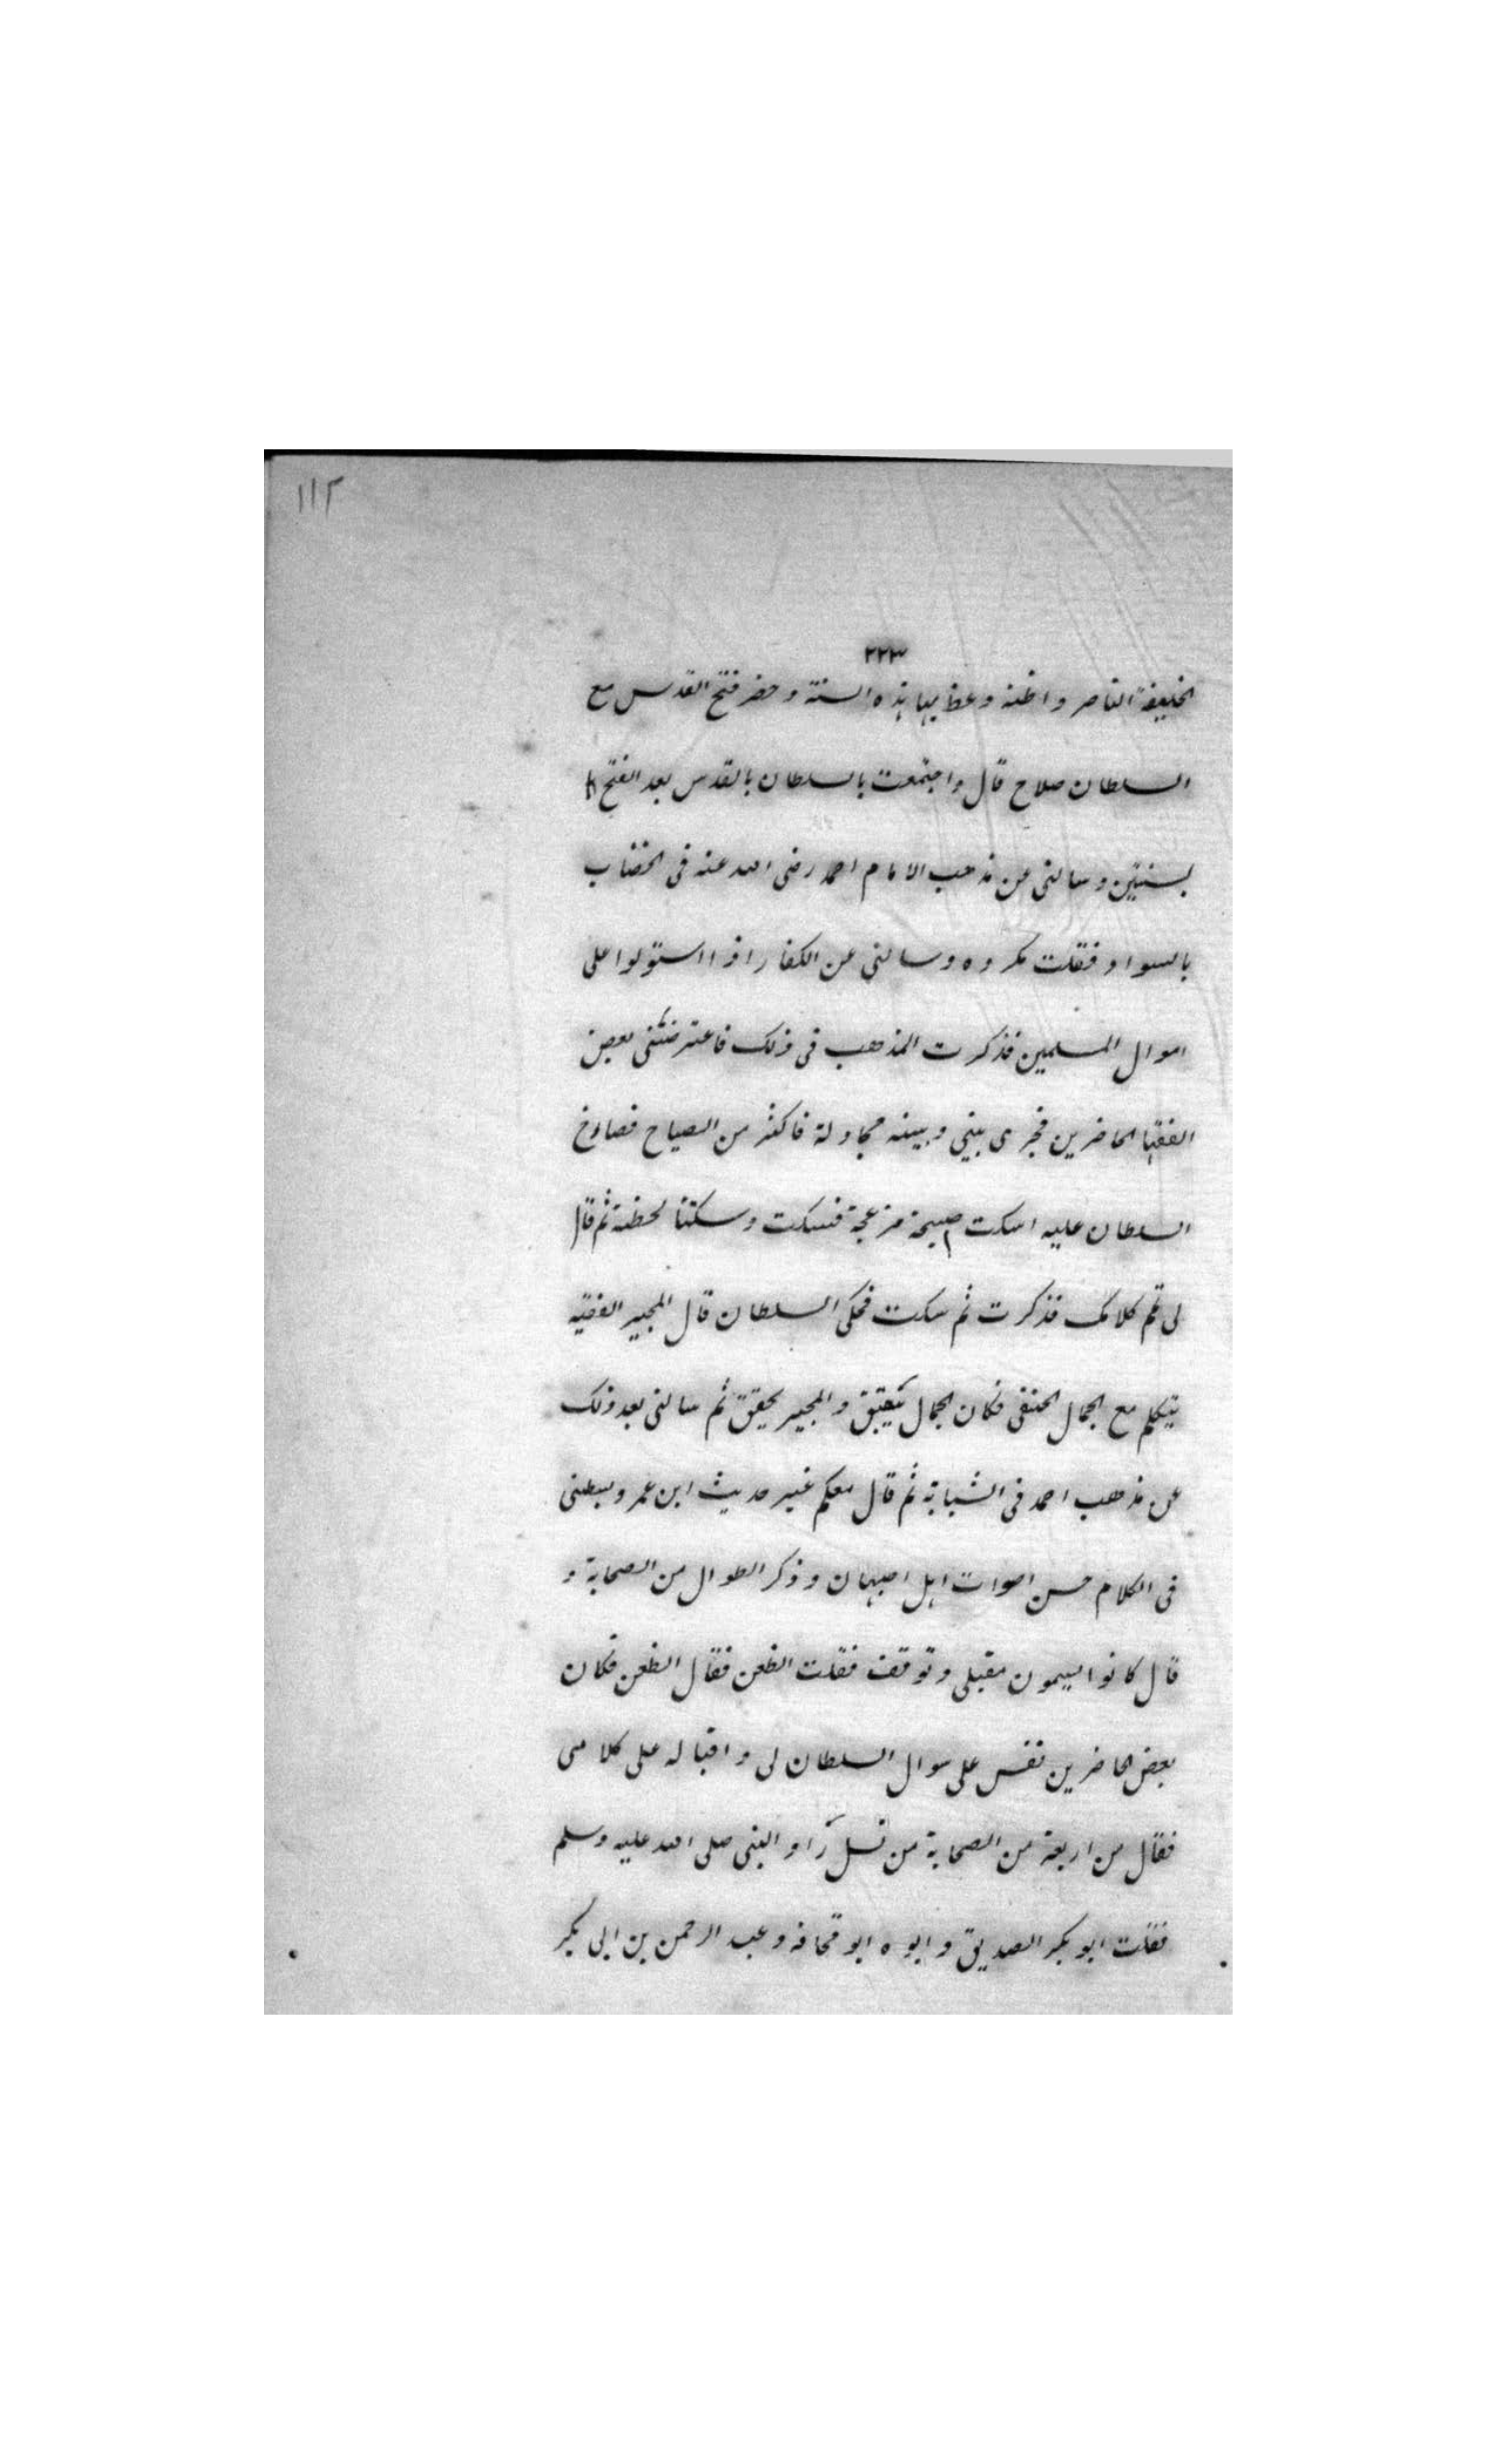 ١١٢
٢٢٣
الخليفة الناصر واظنه وعظ بها هذه السنة وحضر فتح القدس مع
السلطان صلاح قال واجتمعت بالسلطان بالقدس بعد الفتح
بسنتين وسالنى عن مذهب الامام احمد رضى الله عنه فى الخضاب
بالسواد فقلت مكروه وسالنى عن الكفار اذا استولوا على
اموال المسلمين فذكرت المذهب فى ذلك فاعترضنى بعض
الفقها الحاضرين فجرى بينى وبينه مجادلة فاكثر من الصياح فصاح
السلطان عليه اسكت صيحة مزعجة فسكت وسكتنا لحظة ثم قال
لى تم كلامك فذكرت ثم سكت فحكى السلطان قال المجير الفقيه
يتكلم مع الجمال الحنفى فكان الجمال يتقبق والمجير يحقق ثم سالنى بعد ذلك
عن مذهب احمد فى الشبابة ثم قال معكم غير حديث ابن عمر وبسطنى
فى الكلام حسن اصوات اهل اصبهان وذكر الطوال من الصحابة و
قال كانوا يسمون مقبلى وتوقف فقلت الظعن فقال الظعن فكان
بعض الحاضرين نفس على سوال السلطان لى واقباله على كلامى
فقال من اربعة من الصحابة من نسل راو النبى صلى الله عليه وسلم
فقلت ابو بكر الصديق وابوه ابو قحافه وعبد الرحمن بن ابى بكر